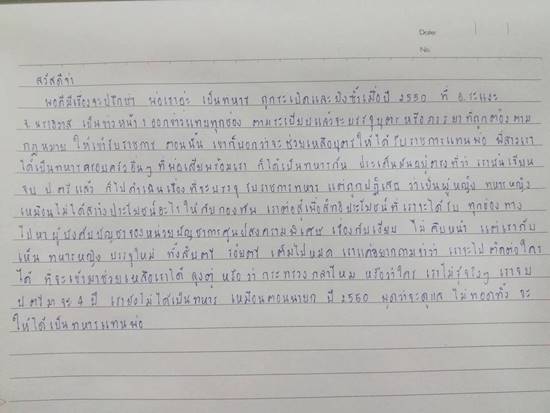 Date:
No.
สวัสดีจ้า
พอดีมีเรื่องจะปรึกษา พ่อเราอ่ะ เป็นทหาร ถูกระเบิดและยิงซ้ำเมื่อปี 2550 ที่ อ.ระแงะ
จ.นราธิวาส เป็นข่าวหน้า 1 ออกข่าวแทบทุกช่อง ตามระเบียบแล้วจะบรรจุบุตรหรือภรรยาที่ถูกต้องตาม
กฎหมาย ให้เข้ารับราชการ ตอนนั้น เขาก็บอกว่าจะช่วยเหลือบุตรให้ได้รับราชการแทนพ่อ พี่สาวเรา
ได้เป็นทหารครอบครัวอื่นๆ ที่พ่อเสียพร้อมเรา ก็ได้เป็นทหารกัน ประเด็นมันอยู่ตรงที่ว่า เรามันเรียน
จบ ป ตรีแล้ว ก็ไปดำเนินเรื่องที่จะบรรจุ รับราชการทหาร แต่ถูกปฏิเสธ ว่าเป็นผู้หญิง ทหารหญิง
เหมือนไม่ได้สร้างประโยชน์อะไร ให้กับกองพัน เราต่อสู้เพื่อสิทธิประโยชน์ที่เราจะได้รับ ทุกช่องทาง
ไปหาผู้บังคับบัญชาของหน่วยบัญชาการศูนย์สงครามพิเศษ เรื่องกับเงียบ ไม่คืบหน้า แต่เรากับ
เห็น ทหารหญิง บรรจุใหม่ ทั้งสิบตรี ร้อยตรี เต็มไปหมด เราแค่อยากถามว่าว่า เราจะไปติดต่อใคร
ได้ ที่จะเข้ามาช่วยเหลือเราได้ ลุงตู่ หรือว่า กระทรวงกลาโหม หรือว่าใคร เราไม่รู้จริงๆ เราจบ
ป ตรีมาจะ 4 ปี เรายังไม่ได้เป็นทหาร เหมือนตอนนายก ปี 2550 พูดว่าจะดูแล ไม่ทอดทิ้ง จะ
ให้ได้เป็นทหารแทนพ่อ